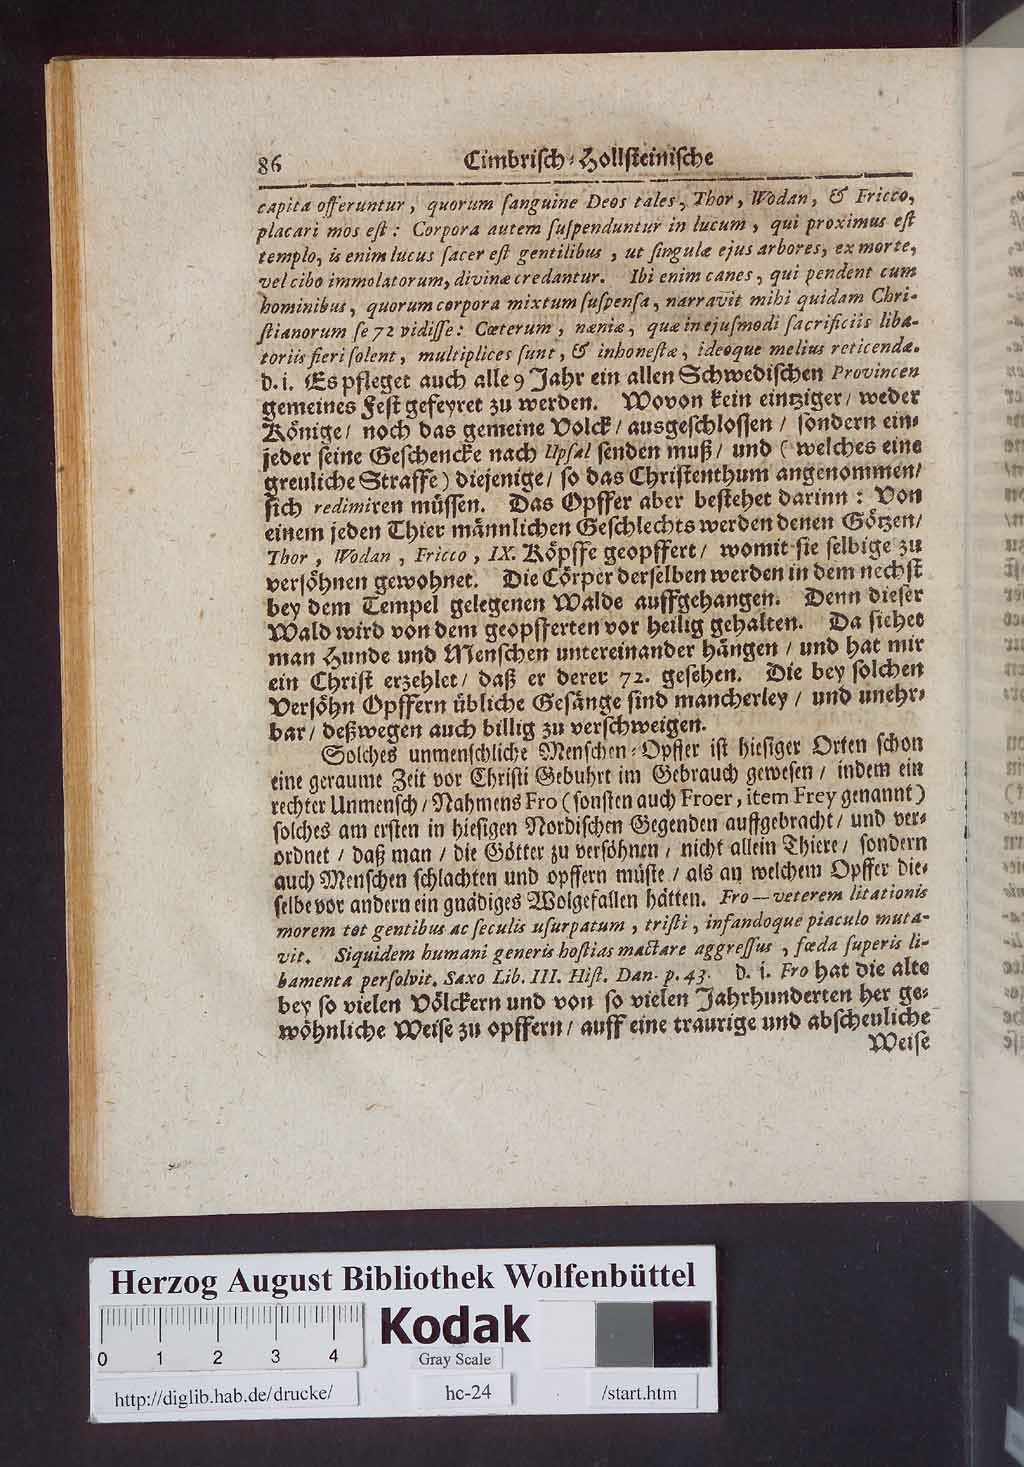 86 Cimbrisch-Hollsteinische
capita offeruntur, quorum sanguine Deos tales, Thor, Wodan, & Fricco,
placari mos est: Corpora autem suspenduntur in lucum, qui proximus est
templo, is enim lucus sacer est gentilibus, ut singulæ ejus arbores, ex morte,
vel cibo immolatorum, divinæ credantur. Ibi enim canes, qui pendent cum
hominibus, quorum corpora mixtum suspensa, narravit mihi quidam Chri-
stianorum se 72 vidisse: Cæterum, næniæ, quæ in ejusmodi sacrificiis liba-
toriis fieri solent, multiplices sunt, & inhonestæ, ideoque melius reticendæ.
d. i. Es pfleget auch alle 9 Jahr ein allen Schwedischen Provincen
gemeines Fest gefeyret zu werden. Wovon kein eintziger/ weder
Könige/ noch das gemeine Volck/ ausgeschlossen/ sondern ein-
jeder seine Geschencke nach Upsal senden muß/ und (welches eine
greuliche Straffe) diejenige/ so das Christenthum angenommen/
sich redimiren müssen. Das Opffer aber bestehet darinn: Von
einem jeden Thier männlichen Geschlechts werden denen Götzen/
Thor, Wodan, Fricco, IX. Köpffe geopffert/ womit sie selbige zu
versöhnen gewohnet. Die Cörper derselben werden in dem nechst
bey dem Tempel gelegenen Walde auffgehangen. Denn dieser
Wald wird von dem geopfferten vor heilig gehalten. Da siehet
man Hunde und Menschen untereinander hängen/ und hat mir
ein Christ erzehlet/ daß er derer 72. gesehen. Die bey solchen
Versöhn Opffern übliche Gesänge sind mancherley/ und unehr-
bar/ deßwegen auch billig zu verschweigen.
Solches unmenschliche Menschen-Opffer ist hiesiger Orten schon
eine geraume Zeit vor Christi Gebuhrt im Gebrauch gewesen/ indem ein
rechter Unmensch/ Nahmens Fro (sonsten auch Froer, item Frey genannt)
solches am ersten in hiesigen Nordischen Gegenden auffgebracht/ und ver-
ordnet/ daß man/ die Götter zu versöhnen/ nicht allein Thiere/ sondern
auch Menschen schlachten und opffern müste/ als an welchem Opffer die-
selbe vor andern ein gnädiges Wolgefallen hätten. Fro — veterem litationis
morem tot gentibus ac seculis usurpatum, tristi, infandoque piaculo muta-
vit. Siquidem humani generis hostias mactare aggressus, fœda superis li-
bamenta persolvit. Saxo Lib. III. Hist. Dan. p. 43. d. i. Fro hat die alte
bey so vielen Völckern und von so vielen Jahrhunderten her ge-
wöhnliche Weise zu opffern/ auff eine traurige und abscheuliche
Weise
Herzog August Bibliothek Wolfenbüttel
0 1 2 3 4
Kodak
Gray Scale
http://diglib.hab.de/drucke/ hc-24 /start.htm